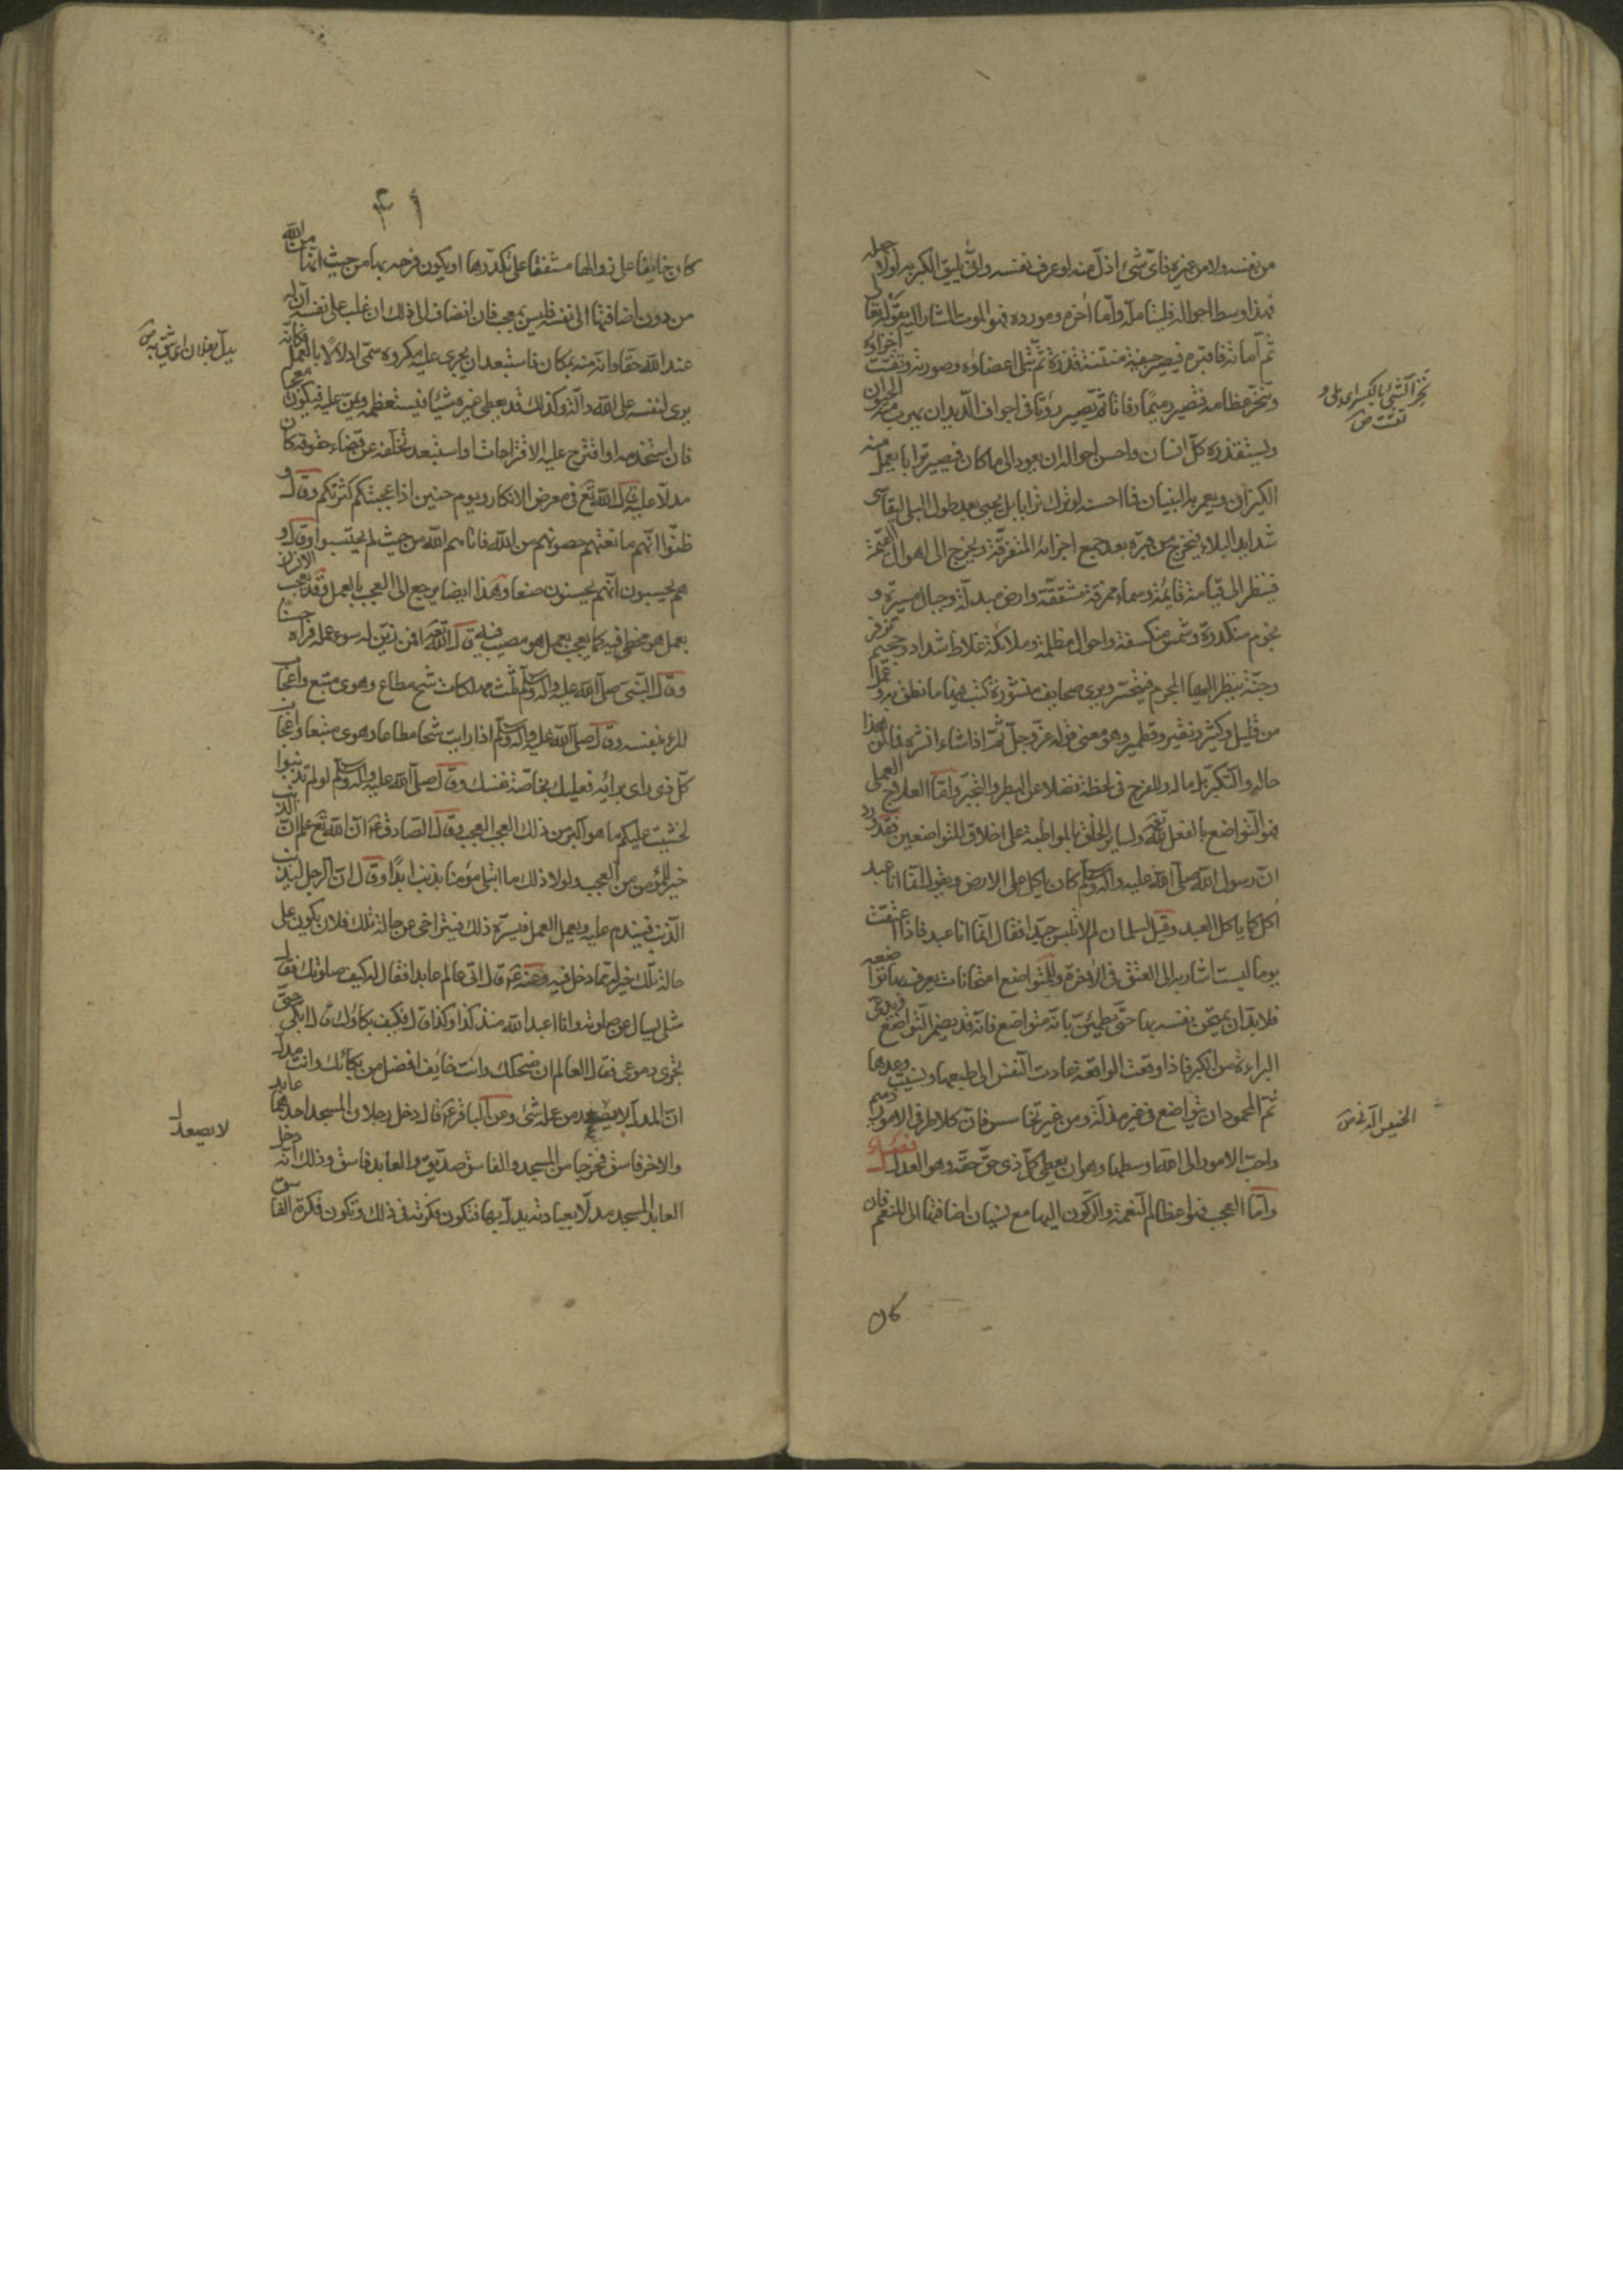 من نفسه ولا من غيره فاى شئ اذل منه لو عرف نفسه وانى يليق الكبر به لولا جهله
فهذا اوسط احواله فليتامله واما اخره ومورده فهو الموت المشار اليه بقوله تعالى
ثم اماته فاقبره فيصير جيفة منتنة قذرة ثم تبلى اعضاؤه وصورته وتفتت اجزاؤه
وتنخر عظامه فتصير رميما رفاتا ثم يصير روثا فى اجواف الديدان يهرب منه الحيوان
ويستقذره كل انسان واحسن احواله ان يعود الى ما كان فيصير ترابا يعمل منه
الكيزان ويعمر به البنيان فما احسنه لو ترك ترابا بل يحيى بعد طول البلى ليقاسى
شدايد البلاء فيخرج من قبره بعد جمع اجزائه المتفرقة ويخرج الى اهوال القيمة
فينظر الى قيامة قايمة وسماء ممزقة مشققة وارض مبدلة وجبال مسيرة و
نجوم منكدرة وشمس منكسفة واحوال مظلمة وملائكة غلاظ شداد وجحيم تزفر
وجنة ينظر اليها المجرم فيتحسر ويرى صحايف منشورة كتب فيها ما نطق به وعمل
من قليل وكثير ونقير وقطمير وهو معنى قوله عز وجل ثم اذا شاء انشره فما لمن هذا
حاله والتكبر بل ماله وللفرح فى لحظة فضلا عن البطر والتجبر واما العلاج العملى
فهو التواضع بالفعل لله تعالى ولساير الخلق بالمواظبة على اخلاق المتواضعين فقد ورد
ان رسول الله صلى الله عليه واله وسلم كان ياكل على الارض ويقول انما انا عبد
اكل كما ياكل العبد وقيل لسلمان لم لا تلبس جيدا فقال انما انا عبد فاذا اعتقت
يوما لبست اشار به الى العتق فى الاخرة وللتواضع امتحانات يعرف بها تواضعه
فلا بد ان يمتحن نفسه بها حتى يطمئن بانه متواضع فانه قد يضمر التواضع ويدعى
البراءة من الكبر فاذا وقعت الواقعة عادت النفس الى طبعها ونسيت وعدها
ثم المحمود ان يتواضع فى غير مذلة ومن غير تخاسس فان كلا طرفى الامور ذميم
واحب الامور الى الله اوسطها وهو ان يعطى كل ذى حق حقه وهو العدل فصل
واما العجب فهو اعظام النعمة والركون اليها مع نسيان اضافتها الى المنعم فان
نخر الشئ بالكسر اى بلى و
تفتت ص
الخسيس الدنى ص
كان
٤١
كان خايفا على زوالها مشفقا على تكدرها او يكون فرحه بها من حيث انها من الله
من دون اضافتها الى نفسه فليس بمعجب فان انضاف الى ذلك ان غلب على نفسه ان له
عند الله حقا وانه منه بمكان فاستبعد ان يجرى عليه مكروه سمى ادلالا بالعمل فكانه
يرى لنفسه على الله دالة وكذلك قد يعطى غيره شيئا فيستعظمه ويمن عليه فيكون معجبا
فان استخدمه او اقترح عليه الاقتراحات او استبعد تخلفه عن قضاء حقوقه كان
مدلا عليه قال الله تع فى معرض الانكار ويوم حنين اذ اعجبتكم كثرتكم وقال و
ظنوا انهم مانعتهم حصونهم من الله فاتاهم الله من حيث لم يحتسبوا وقال و
هم يحسبون انهم يحسنون صنعا وهذا ايضا يرجع الى العجب بالعمل فقد يعجب الانسان
بعمل هو مخطئ فيه كما يعجب بعمل هو مصيب فيه قال الله تع افمن زين له سوء عمله فراه حسنا
وقال النبى صلى الله عليه واله وسلم ثلث مهلكات شح مطاع وهوى متبع واعجاب
المرء بنفسه وقال صلى الله عليه واله وسلم اذا رايت شحا مطاعا وهوى متبعا واعجاب
كل ذى راى برايه فعليك بخاصة نفسك وقال صلى الله عليه واله وسلم لو لم تذنبوا
لخشيت عليكم ما هو اكبر من ذلك العجب العجب وقال الصادق ع ان الله تع علم ان الذنب
خير للمؤمن من العجب ولولا ذلك ما ابتلى مؤمنا بذنب ابدا وقال ان الرجل ليذنب
الذنب فيندم عليه ويعمل العمل فيسره ذلك فيتراخى عن حاله تلك فلان يكون على
حاله تلك خير له مما دخل فيه وعنه ع قال اتى عالم عابدا فقال له كيف صلوتك فقال
مثلى يسال عن صلوته وانا اعبد الله منذ كذا وكذا قال فكيف بكاؤك قال ابكى حتى
تجرى دموعى فقال العالم ان ضحكك وانت خايف افضل من بكائك وانت مدل
ان المدل لا يصعد من عمله شئ وعن الباقر ع قال دخل رجلان المسجد احدهما عابد
والاخر فاسق فخرجا من المسجد والفاسق صديق والعابد فاسق وذلك انه دخل
العابد المسجد مدلا بعبادته يدل بها فتكون فكرته فى ذلك وتكون فكرة الفاسق
يدل بفلان اى يثق به ص
لا يصعد